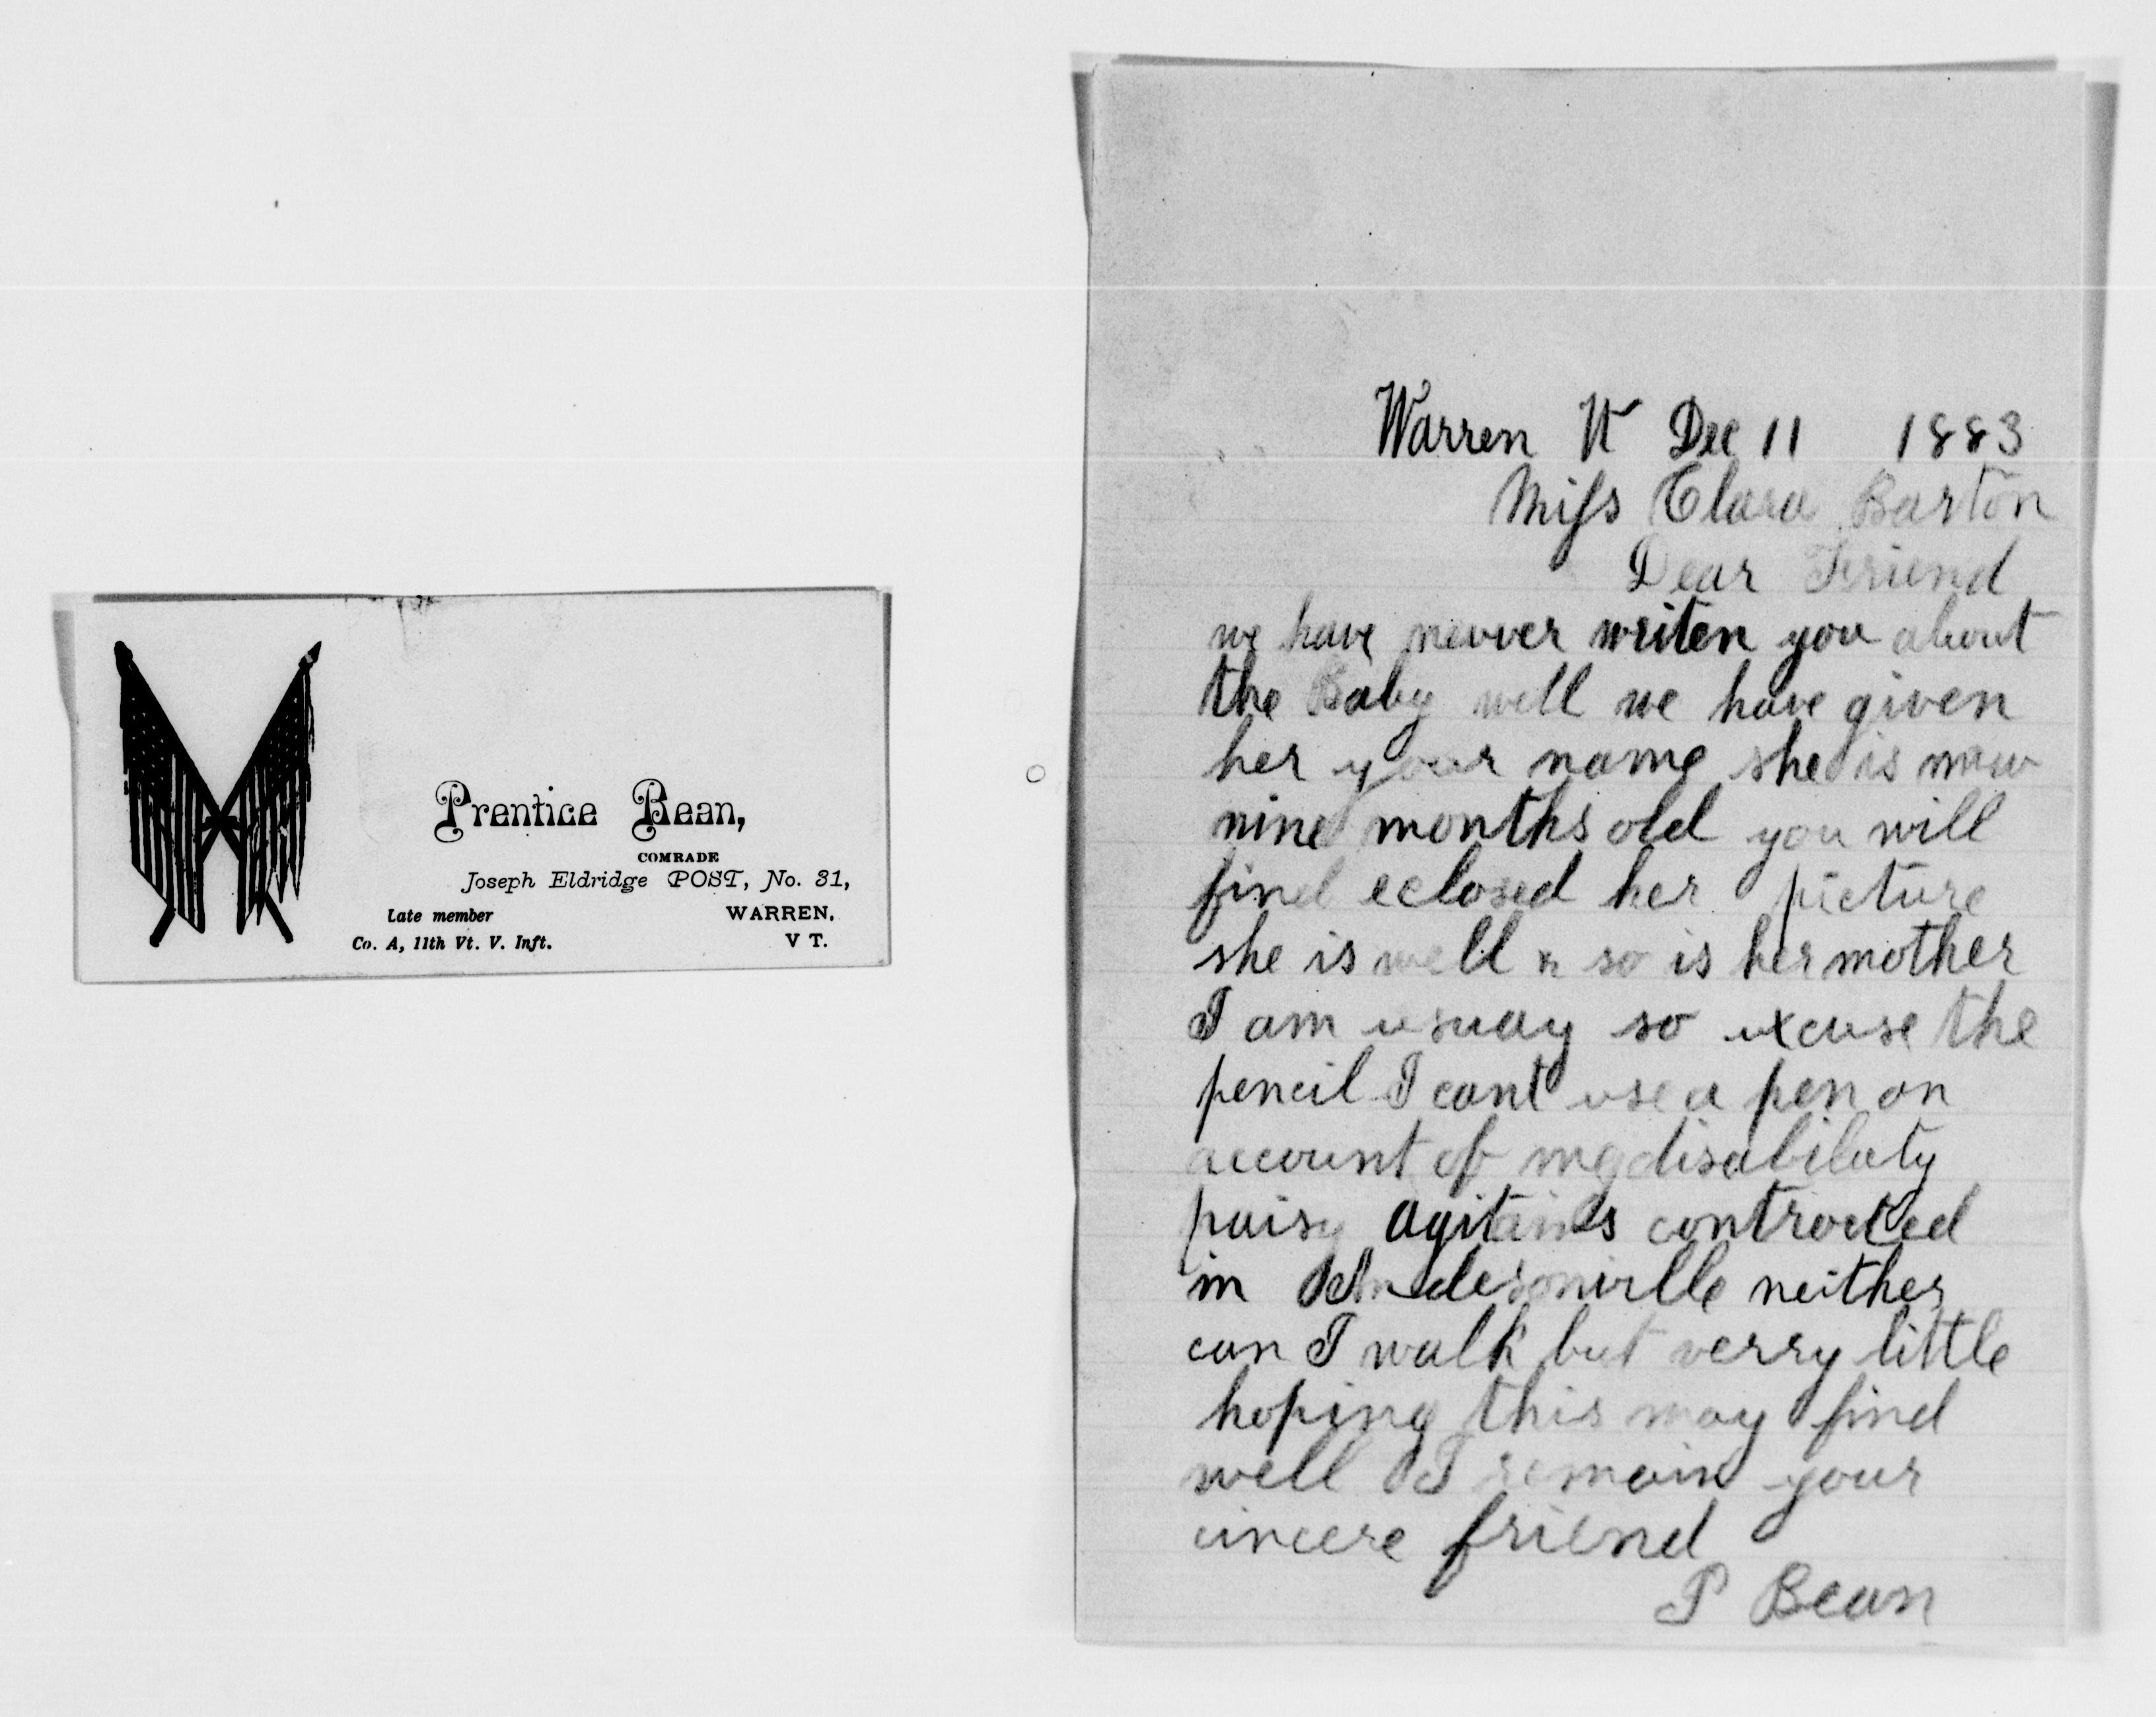 Prentice Bean,
COMRADE
Joseph Eldridge POST, No. 31,
Late member
WARREN,
Co. A, 11th Vt. V. Inft.
VT.
Warren Vt Dec 11 1883
Miss Clara Barton
Dear Friend
we have nevver writen you about
the Baby well we have given
her your name she is now
nine months old you will
find eclosed her picture
she is well & so is her mother
I am usuay so excuse the
pencil I cant use a pen on
account of my disabilaty
Agitans contracted
in Andesonville neither
can I walk but verry little
hoping this may find
well I remain your
sincere friend
P Bean